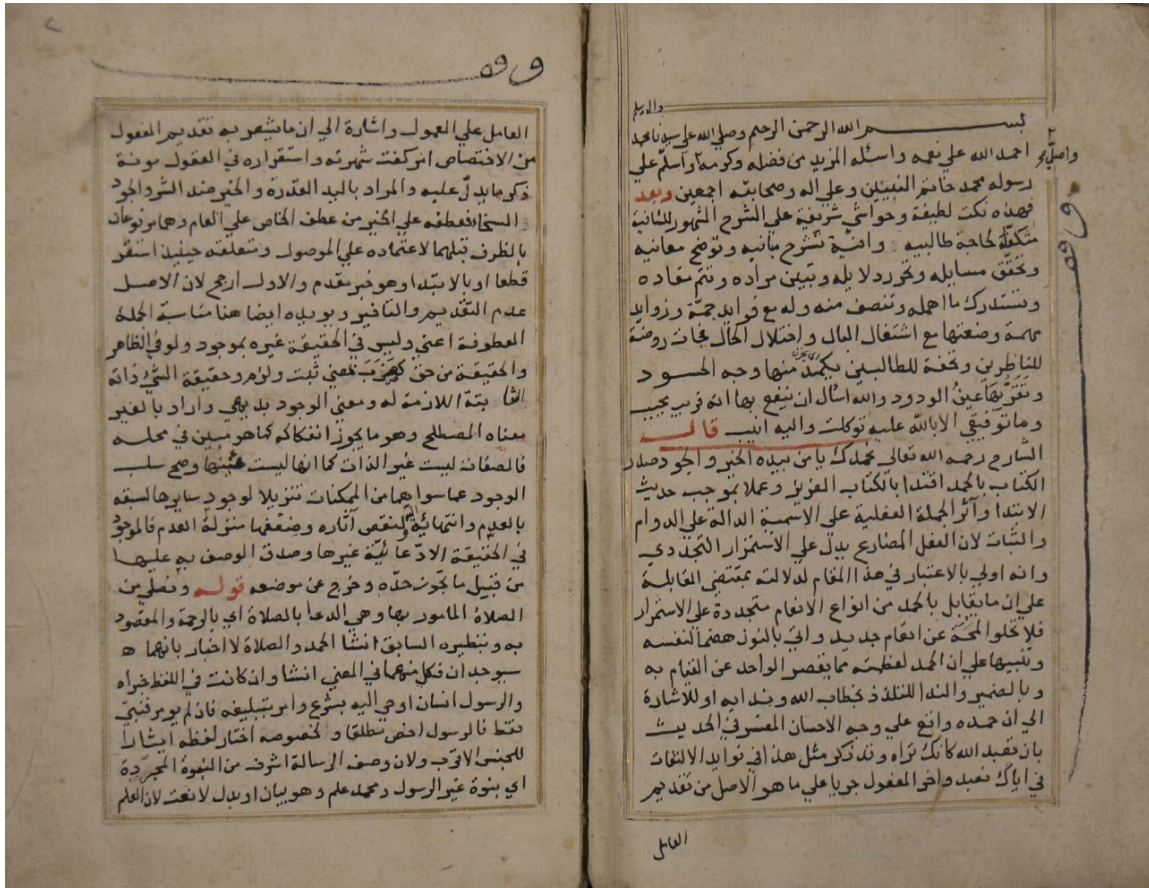 وقف
واله وسلم
بسم الله الرحمن الرحيم وصلي الله علي سيدنا محمد
احمد الله علي نعمه واسئله المزيد من فضله وكرمه واسلم علي
واصلي
رسوله محمد خاتم النبيين وعلي اله وصحابته اجمعين وبعد
فهذه نكت لطيفة وحواشي شريفة علي الشرح المشهور
متكفلة لحاجة طالبيه وافية تشرح مبانيه وتوضح معانيه
وتحقق مسايله وتحرر دلايله وتبين مراده وتتم مفاده
وتستدرك ما اهمله وتنصف منه وله مع فوايد جمة وزوايد
مهمة وضعتها مع اشتغال البال واختلال الحال فجات روضة
للناظرين وتحفة للطالبين يكمد منها وجه الحسود
وتقر بها عين الودود والله اسأل ان ينفع بها انه قريب مجيب
وما توفيقي الا بالله عليه توكلت واليه انيب قال
الشارح رحمه الله تعالي نحمدك يا من بيده الخير والجود صدر
الكتاب بالحمد اقتدا بالكتاب العزيز وعملا بموجب حديث
الابتدا وآثر الجملة الفعلية علي الاسمية الدالة علي الدوام
والثبات لان الفعل المضارع يدل علي الاستمرار التجددي
وانه اولي بالاعتبار في هذا المقام لدلالته بمقتضي المقابلة
علي ان ما يقابل بالحمد من انواع الانعام متجددة علي الاستمرار
فلا يخلوا لمحة عن انعام جديد واتي بالنون هضما لنفسه
وتنبيها علي ان الحمد لعظمته مما يقصر الواحد عن القيام به
وبالضمير والندا للتلذذ بخطاب الله وندايه او للاشارة
الي ان حمده واقع علي وجه الاحسان المفسر في الحديث
بان تعبد الله كانك تراه وقد ذكر مثل هذا في فوايد الالتفات
في اياك نعبد واخر المفعول جريا علي ما هو الاصل من تقديم
العامل
وقف
العامل علي المعمول واشارة الي ان ما يشعر به تقديم المفعول
من الاختصاص امر كفت شهرته واستقراره في العقول مونة
ذكر ما يدل عليه والمراد باليد القدرة والخير ضد الشر والجود
السخاء فعطفه علي الخير من عطف الخاص علي العام وهما مرفوعان
بالظرف قبلهما لاعتماده علي الموصول ومتعلقه حينيذ استقر
قطعا او بالابتدا وهو خبر مقدم والاول ارجح لان الاصل
عدم التقديم والتاخير ويويده ايضا هنا مناسبة الجملة
المعطوفة اعني وليس في الحقيقة غيره بموجود ولو في الظاهر
والحقيقة من حق كضرب بمعني ثبت ولزم وحقيقة الشي ذاته
الثابتة اللازمة له ومعني الوجود بديهي واراد بالغير
معناه المصطلح وهو ما يجوز انفكاكه كما هو مبين في محله
فالصفات ليست غير الذات كما انها ليست عينها وصح سلب
الوجود عما سواهما من الممكنات تنزيلا لوجود سايرها لسبقه
بالعدم وانتهائه لنقص آثاره وضعفها منزلة العدم فالموجود
في الحقيقة الادعائية غيرها وصدق الوصف به عليها
من قبيل ما تجوز حده وخرج عن موضعه قوله ونصلي من
الصلاة المامور بها وهي الدعا بالصلاة اي بالرحمة والمقصود
به وبنظيره السابق انشا الحمد والصلاة لا اخبار بانهما
سيوجدان فكل منهما في المعني انشا وان كانت في اللفظ خبراه
والرسول انسان اوحي اليه بشرع وامر بتبليغه فان لم يومر فنبي
فقط فالرسول اخص مطلقا و لخصوصه اختار لفظه ايشارا
للجنس الاقرب ولان وصف الرسالة اشرف من النبوة المجردة
اي بنوة غير الرسول ومحمد علم وهو بيان او بدل لا نعت لان العلم